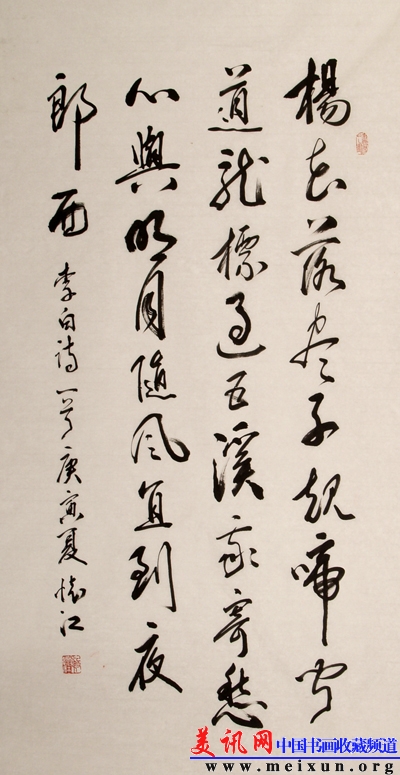 楊花落盡子規啼聞
道龍標過五溪我寄愁
心與明月隨風直到夜
郎西
李白詩一首庚寅夏懷江
美讯网 中国书画收藏频道
www.meixun.org